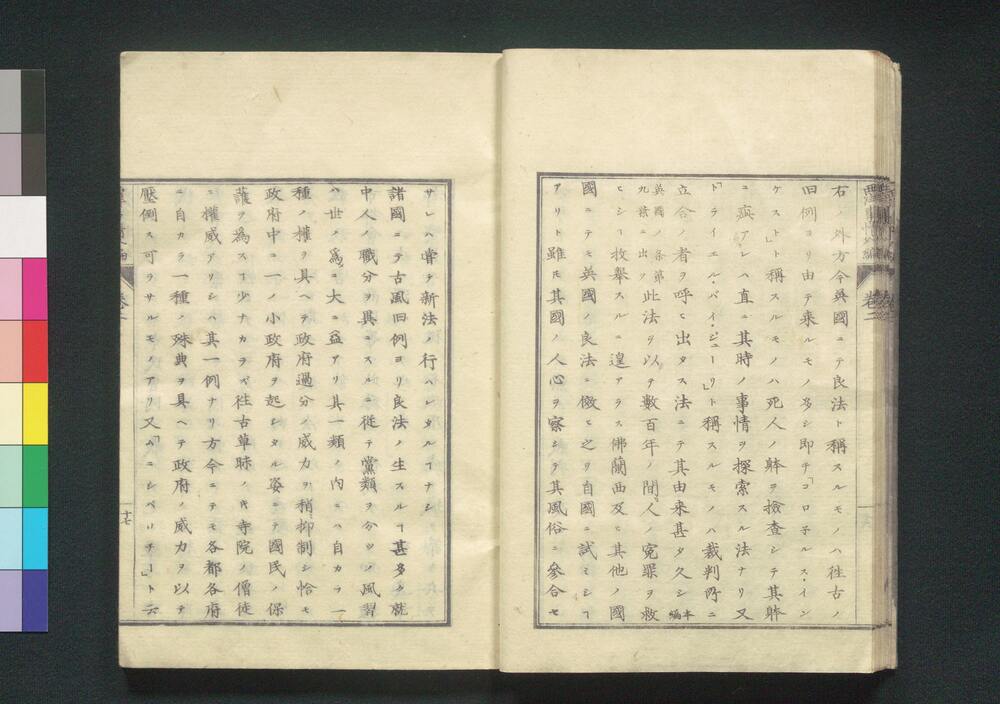 右ノ外方今英國ニテ良法ト稱スルモノハ徃古ノ
旧例ヨリ由テ来ルモノ多シ即チ「コロ子ルス・イン
ケスト」ト稱スルモノハ死人ノ躰ヲ撿査シテ其躰
ニ疵アレハ直ニ其時ノ事情ヲ探索スル法ナリ又
「トライエル・バイ・ジューリ」ト稱スルモノハ裁判所ニ
立合ノ者ヲ呼ヒ出タス法ニテ其由来甚タ久シ本編
英國ノ条第九葉ニ出ツ此法ヲ以テ數百年ノ間人ノ冤罪ヲ救
ヒシヿ枚舉スルニ遑アラス佛蘭西及ヒ其他ノ國
國ニテモ英國ノ良法ニ傚ヒ之リ自國ニ試ミシヿ
アリト雖モ其國ノ人心ヲ察シテ其風俗ニ參合セ
サレハ嘗テ新法ノ行ハレタルヿナシ
諸國ニテ古風旧例ヨリ良法ノ生スルヿ甚多ク就
中人ノ職分ヲ異ニスルニ從テ黨類ヲ分ツノ風習
ハ世ノ爲ニ大ニ益アリ其一類ノ内ニハ自カラ一
種ノ權ヲ具ヘテ政府過分ノ威力ヲ稍抑制シ恰モ
政府中ニ一ノ小政府ヲ起シタル姿ニテ國民ノ保
護ヲ為スヿ少ナカラズ徃古草昧ノ時寺院ノ僧徒
ニ權威アリシハ其一例ナリ方今ニテモ各都各府
ニ自カラ一種ノ殊典ヲ具ヘテ政府ノ威力ヲ以テ
壓倒ス可ラサルモノアリ又「ムニシペリチー」ト云
卷二
十七
卷二